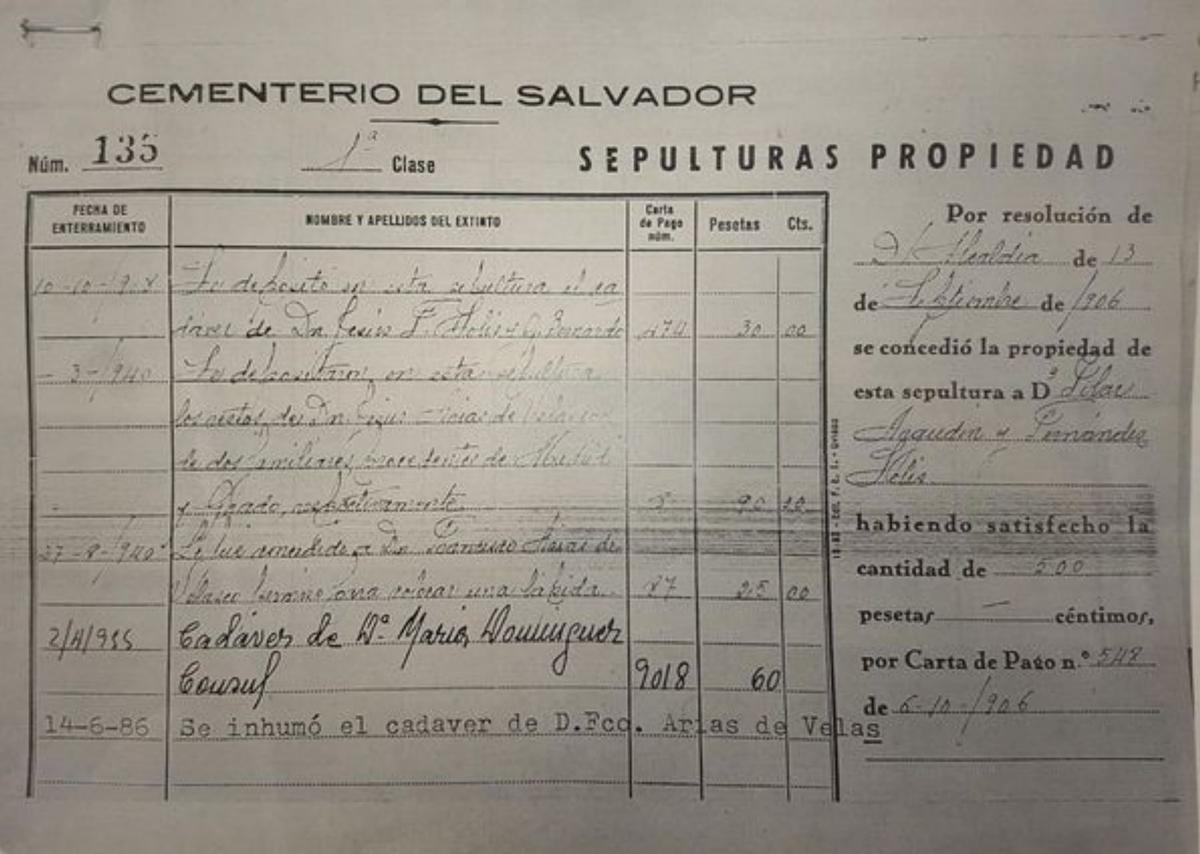 CEMENTERIO DEL SALVADOR
Núm. 135
1ª Clase
SEPULTURAS PROPIEDAD
FECHA DE ENTERRAMIENTO
NOMBRE Y APELLIDOS DEL EXTINTO
Carta de Pago núm.
Pesetas
Cts.
10-10-/9 Se depositó en esta sepultura el ca
daver de Dn. Jesús F. Solis y G. Bernardo 30 00
- 3-/940 Se depositaron en esta sepultura
los restos de Dn. Jesús Arias de Velasco
de dos familiares procedentes de Madrid
y Grado, respectivamente. 90
27-8-/940 Le fue concedido a Dn. Francisco Arias de
Velasco permiso para colocar una lápida 87 25 00
2/4/955 Cadáver de Dª Maria Dominguez
Consul 9018 60
14-6-86 Se inhumó el cadaver de D.Fco. Arias de Velas
Por resolución de
Alcaldia de 13
de Septiembre de /906
se concedió la propiedad de
esta sepultura a Dª Pilar
Fernández
Solis
habiendo satisfecho la
cantidad de 500
pesetas — céntimos,
por Carta de Pago n.º 548
de 6-10-/906